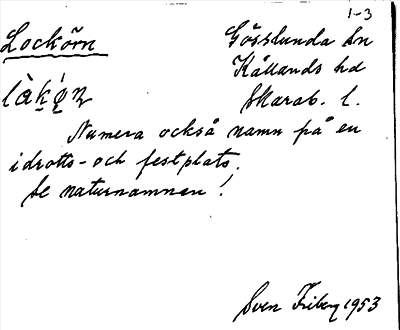 1-3
Lockörn
Gösslunda sn
Kållands hd
Skarab. l.
Numera också namn på en
idrotts- och festplats.
Se naturnamnen!
Sven Friberg 1953